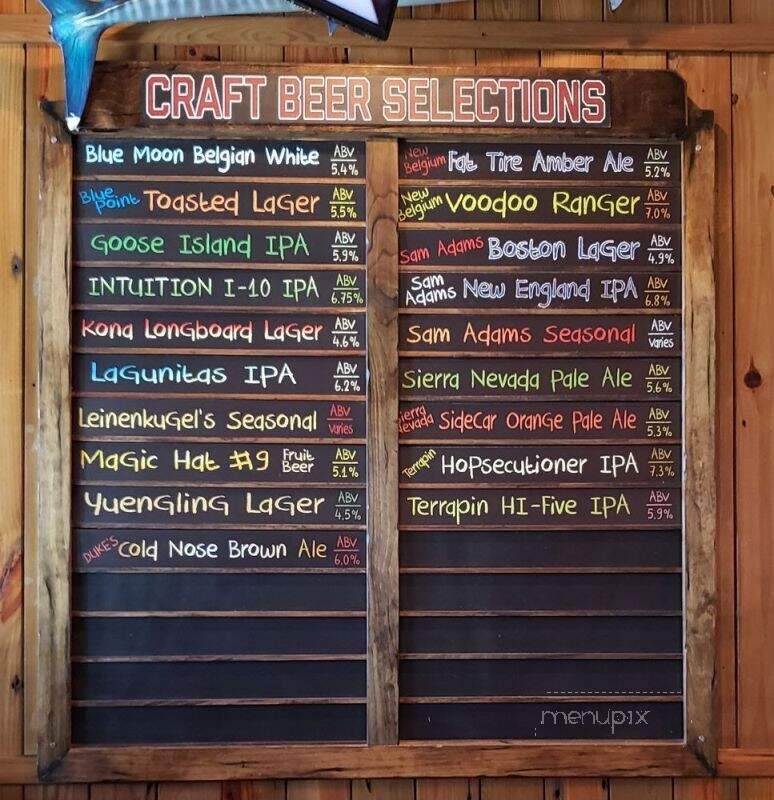 CRAFT BEER SELECTIONS
Blue Moon Belgian White ABV 5.4%
Blue Point Toasted Lager ABV 5.5%
Goose Island IPA ABV 5.9%
INTUITION I-10 IPA ABV 6.75%
Kona Longboard Lager ABV 4.6%
Lagunitas IPA ABV 6.2%
Leinenkugel's Seasonal ABV varies
Magic Hat #9 Fruit Beer ABV 5.1%
Yuengling Lager ABV 4.5%
DUKE'S Cold Nose Brown Ale ABV 6.0%
New Belgium Fat Tire Amber Ale ABV 5.2%
New Belgium Voodoo Ranger ABV 7.0%
Sam Adams Boston Lager ABV 4.9%
Sam Adams New England IPA ABV 6.8%
Sam Adams Seasonal ABV varies
Sierra Nevada Pale Ale ABV 5.6%
Sierra Nevada SideCar Orange Pale Ale ABV 5.3%
Terrapin Hopsecutioner IPA ABV 7.3%
Terrapin HI-Five IPA ABV 5.9%
menupix